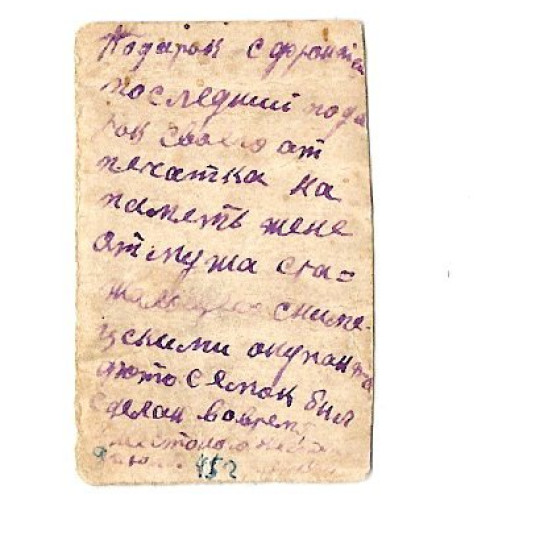 Подарок с фронта
последний пода
рок своего от
печатка на
память жене
от мужа сра=
жающегося с име
цкими окупанта
фото с емок был
сделан вовремя
452